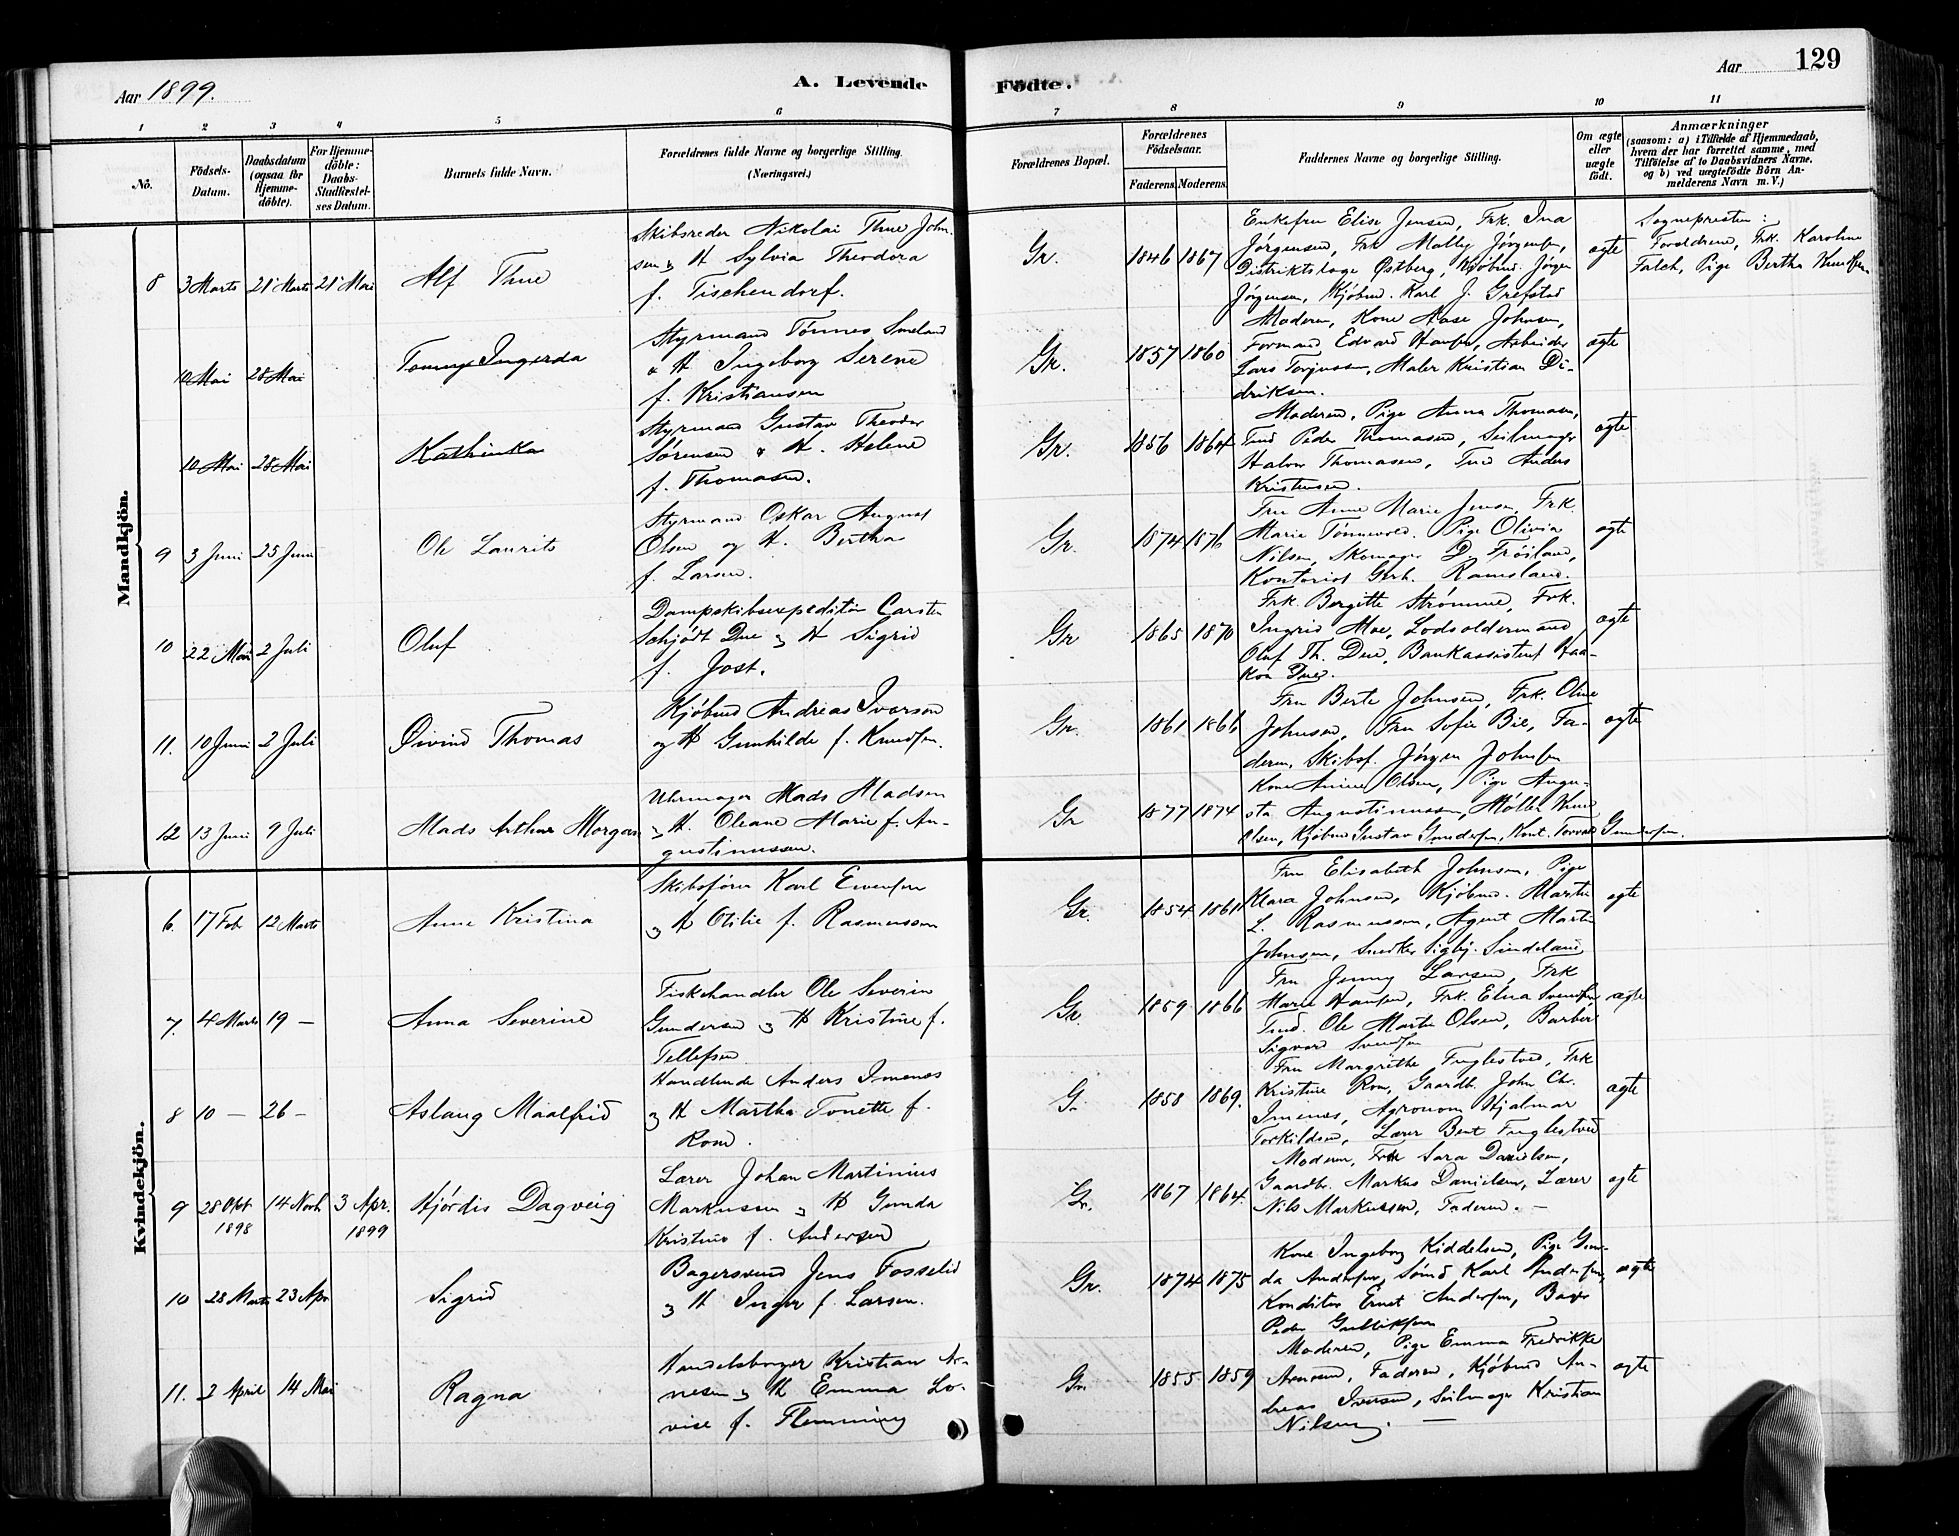 Aar 1899.
A. Levende
Födte.
Aar
129
1
2
3
4
5
6
7
8
9
10
11
No.
Födsels-
Datum.
Daabsdatum
(ogsaa for
Hjemme-
döbte).
For Hjemme-
döbte:
Daabs-
Stadfæstel-
ses Datum.
Barnets fulde Navn.
Forældrenes fulde Navne og borgerlige Stilling.
(Næringsvei.)
Forældrenes Bopæl.
Forældrenes
Födselsaar.
Faderens.
Moderens.
Faddernes Navne og borgerlige Stilling.
Om ægte
eller
uægte
født.
Anmærkninger
(saasom: a) i Tilfælde af Hjemmedaab,
hvem der har forrettet samme, med
Tilföielse af to Daabsvidners Navne.
og b) ved uægtefödte Börn An-
melderens Navn m. V.)
Mandkjön.
8
3 Marts
21 Marts
21 Mai
Alf Thue
Skibsreder Nikolai Thue John-
sen og H Sylvia Theodora
f. Tischendorf.
Gr.
1846
1867
Enkefru Elise Jensen, Frk. Ina
Jørgensen, Frk Molly Jørgensen,
Distriktslæge Østberg, Kjøbmd. Jørgen
Jørgensen, Kjøbmd. Karl J. Grefstad
ægte
Sognepresten:
Forældrene, Frk. Karoline
Falch, Pige Bertha Knudsen
10 Mai
28 Mai
Tommy Ingerda
Styrmand Tønnes Smeland
& H Ingeborg Serene
f. Kristiansen
Gr.
1857
1860
Moderen, Kone Aase Johnsen,
Formand Edvard Hansen, Arbeider
Lars Torjussen, Maler Kristian Di-
driksen.
ægte
10 Mai
28 Mai
Kathinka
Styrmand Gustav Theodor
Sørensen & H. Helene
f. Thomasen.
Gr.
1856
1864
Moderen, Pige Anna Thomasen,
Tmd Peder Thomasen, Seilmager
Halvor Thomasen, Tmd Anders
Kristensen.
ægte
9
3 Juni
25 Juni
Ole Laurits
Styrmand Oskar August
Olsen og H. Bertha
f. Larsen.
Gr.
1874
1876
Fru Anne Marie Jensen, Frk.
Marie Tønnevold. Pige Olivia
Nilsen, Skomager D. Frøiland,
Kontorist Gerh. Ramsland.
ægte
10
22 Mai
2 Juli
Oluf
Dampskibsexpeditør Carsten
Schjødt Due og H Sigrid
f. Jost.
Gr
1865
1870
Frk. Bergitte Strømme, Frk.
Ingrid Moe, Lodsoldermand
Oluf Th. Due, Bankassistent Haa-
kon Due.
ægte
11.
10 Juni
2 Juli
Øivind Thomas
Kjøbmd Andreas Iversen
og H Gunhilde f. Knudsen.
Gr.
1861
1866
Fru Berte Johnsen, Frk. Oline
Johnsen, Fru Sofie Bie, Fa-
deren, Skibsf. Jørgen Johnsen
ægte
12
13 Juni
9 Juli
Mads Arthur Morgan
Uhrmager Mads Madsen
og H. Oleane Marie f. Au-
gustinussen.
Gr
1877
1874
Kone Anne Olsen, Pige Augu-
sta Augustinussen, Møller Knud
Olsen, Kjøbmd Gustav Gundersen, Kont. Torvald Gundersen.
Kvindekjön.
6.
17 Feb
12 Marts
Anne Kristina
Skibsfører Karl Evensen
og H Otilie f. Rasmussen
Gr.
1854
1861
Fru Elisabeth Johnsen, Pige
Klara Johnsen, Kjøbmd. Martin
L. Rasmussen, Agent Martin
Johnsen, Snedker Sigbj. Sindeland
ægte
7.
4 Marts
19 —
Anna Severine
Fiskehandler Ole Severin
Gundersen og H Kristine f.
Tellefsen
Gr.
1859
1866
Fru Jenny Larsen, Frk
Marie Hansen, Frk. Elna Svendsen,
Tmd. Ole Martin Olsen, Barber
Sigvard Svendsen
ægte
8
10 —
26 —
Aslaug Maalfrid
Handlende Anders Imenes
og H Martha Tonette f.
Rom.
G.
1858
1869.
Fru Margrethe Fuglestved, Frk
Kristine Rom, Gaardb. John Ch.
Imenes, Agronom Hjalmar
Torkildsen, Lærer Bent Fuglestved
ægte
9
28 Okt
1898
14 Novb
3 Apr.
1899
Hjørdis Dagveig
Lærer Johan Martinius
Markussen og H Gunda
Kristine f. Andersen
Gr.
1867
1864.
Moderen, Frk Sara Danielsen,
Gaardbr. Markus Danielsen, Lærer
Nils Markussen, Faderen. —
ægte
10
28 Marts
23 Apr
Sigrid
Bagersvend Jens Fosselid
og H Inger f. Larsen.
Gr.
1874
1875
Kone Ingeborg Kiddelsen, Pige Gun-
da Andersen, Sømd Karl Andersen,
Konditor Ernst Andersen, Bager
Peder Gulliksen
ægte
11.
2 April
14 Mai
Ragna
Handelsborger Kristian Ar-
nesen og H Emma Lo-
vise f. Flemming
Gr.
1855
1859
Moderen, Pige Emma Fredrikke
Arnesen, Faderen, Kjøbmd An-
dreas Iversen, Seilmager Kristian
Nilsen. —
ægte